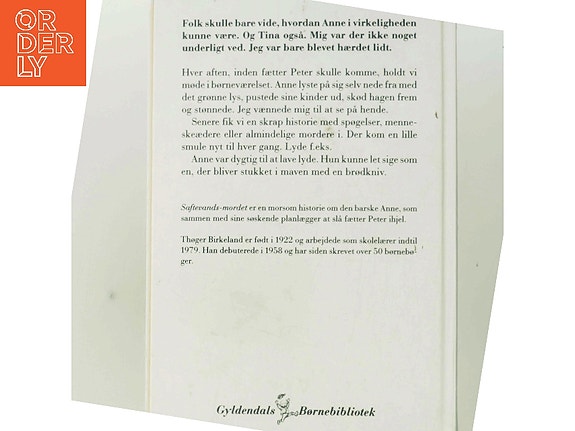 ORDERLY
Folk skulle bare vide, hvordan Anne i virkeligheden
kunne være. Og Tina også. Mig var der ikke noget
underligt ved. Jeg var bare blevet hærdet lidt.
Hver aften, inden fætter Peter skulle komme, holdt vi
møde i børneværelset. Anne lyste på sig selv nede fra med
det grønne lys, pustede sine kinder ud, skød hagen frem
og stønnede. Jeg vænnede mig til at se på hende.
Senere fik vi en skrap historie med spøgelser, menne-
skeædere eller almindelige mordere i. Der kom en lille
smule nyt til hver gang. Lyde f.eks.
Anne var dygtig til at lave lyde. Hun kunne let sige som
en, der bliver stukket i maven med en brødkniv.
Saftevands-mordet er en morsom historie om den barske Anne, som
sammen med sine søskende planlægger at slå fætter Peter ihjel.
Thøger Birkeland er født i 1922 og arbejdede som skolelærer indtil
1979. Han debuterede i 1958 og har siden skrevet over 50 børnebø
ger.
Gyldendals Børnebibliotek